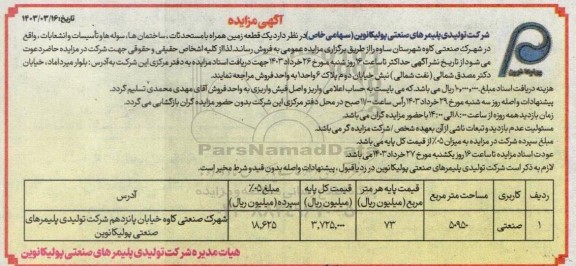 تاریخ: ۱۴۰۳/۰۳/۱۶
آگهی مزایده
شرکت تولیدی پلیمرهای صنعتی پولیکانوین (سهامی خاص) در نظر دارد یک قطعه زمین همراه با مستحدثات، ساختمان ها، سوله ها و تأسیسات و انشعابات، واقع
در شهرک صنعتی کاوه شهرستان ساوه را از طریق برگزاری مزایده عمومی به فروش رساند. لذا از کلیه اشخاص حقیقی و حقوقی جهت شرکت در مزایده حاضر دعوت
می شود از تاریخ نشر آگهی حداکثر تا ساعت ۱۶ روز شنبه مورخ ۲۶ خرداد ۱۴۰۳ جهت دریافت اسناد مزایده به دفتر مرکزی این شرکت به آدرس: بلوار میرداماد، خیابان
دکتر مصدق شمالی (نفت شمالی) نبش خیابان دوم پلاک ۶ واحد ۱ به واحد فروش مراجعه نمایند.
هزینه دریافت اسناد مبلغ ۱۰،۰۰۰،۰۰۰ ریال می باشد که می بایست به حساب اعلامی واریز و اصل فیش واریزی به واحد فروش آقای مهدی محمدی تسلیم گردد.
پیشنهادات واصله روز سه شنبه مورخ ۲۹ خرداد ۱۴۰۳ رأس ساعت ۱۱:۰۰ صبح در محل دفتر مرکزی این شرکت بدون حضور مزایده گران بازگشایی می گردد.
زمان بازدید همه روزه از ساعت ۸:۰۰ الی ۱۴:۰۰ با حضور مزایده گران می باشد.
مسئولیت عدم بازدید و تبعات ناشی از آن بعهده شخص / شرکت مزایده گر می باشد.
مبلغ سپرده شرکت در مزایده به میزان ۰.۵٪ از قیمت کل پایه می باشد.
عودت اسناد مزایده تا ساعت ۱۶ روز یکشنبه مورخ ۲۷ خرداد ۱۴۰۳ می باشد.
لازم به ذکر است شرکت تولیدی پلیمرهای صنعتی پولیکانوین در رد یا قبول، پیشنهادات واصله بدون قید و شرط مخیر است.
ردیف کاربری مساحت متر مربع قیمت پایه هر متر مربع (میلیون ریال) قیمت کل پایه (میلیون ریال) مبلغ ۰.۵٪ سپرده (میلیون ریال) آدرس
۱ صنعتی ۵۰۹۵۰ ۷۳ ۳,۷۲۵,۰۰۰ ۱۸,۶۲۵ شهرک صنعتی کاوه خیابان پانزدهم شرکت تولیدی پلیمرهای صنعتی پولیکانوین
هیات مدیره شرکت تولیدی پلیمرهای صنعتی پولیکانوین
ParsNamadData